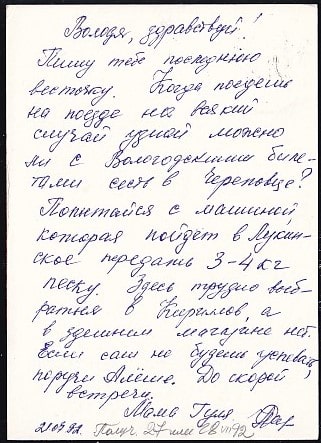 Володя, здравствуй!
Пишу тебе последнюю
весточку. Когда поедешь
на поезде на всякий
случай узнай можно
ли с Вологодскими биле-
тами сесть в Череповце?
Попытайся с машиной,
которая пойдет в Лукин-
ское передать 3-4 кг
песку. Здесь трудно выб-
раться в Кириллов, а
в здешнем магазине нет.
Если сам не будешь успевать,
поручи Алёше. До скорой
встречи.
Мама Гуля.
21.07.92. Получ. 27 VII 92